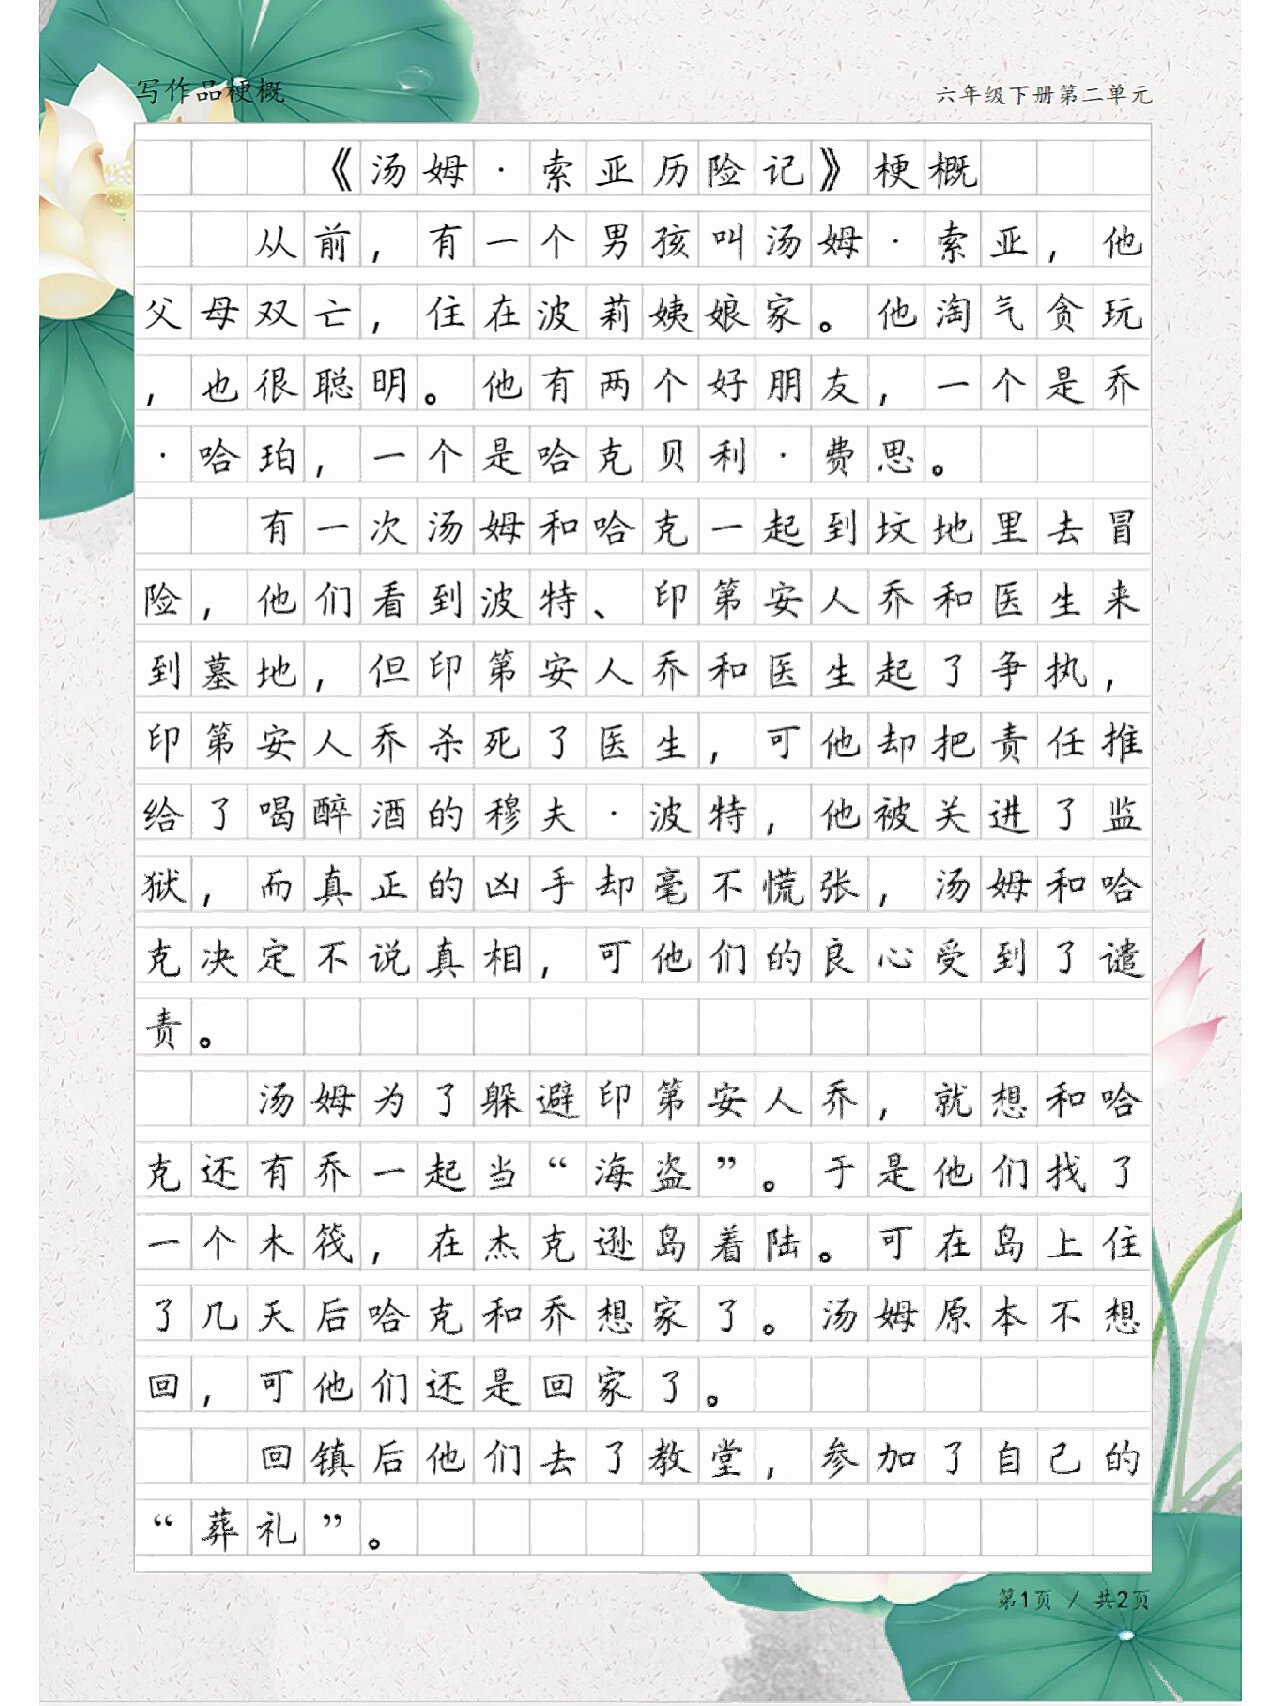 写作品梗概
六年级下册第二单元
《汤姆·索亚历险记》梗概
从前，有一个男孩叫汤姆·索亚，他
父母双亡，住在波莉姨娘家。他淘气贪玩
，也很聪明。他有两个好朋友，一个是乔
·哈珀，一个是哈克贝利·费恩。
有一次汤姆和哈克一起到坟地里去冒
险，他们看到波特、印第安人乔和医生来
到墓地，但印第安人乔和医生起了争执，
印第安人乔杀死了医生，可他却把责任推
给了喝醉酒的穆夫·波特，他被关进了监
狱，而真正的凶手却毫不慌张，汤姆和哈
克决定不说真相，可他们的良心受到了谴
责。
汤姆为了躲避印第安人乔，就想和哈
克还有乔一起当“海盗”。于是他们找了
一个木筏，在杰克逊岛着陆。可在岛上住
了几天后哈克和乔想家了。汤姆原本不想
回，可他们还是回家了。
回镇后他们去了教堂，参加了自己的
“葬礼”。
第1页 / 共2页